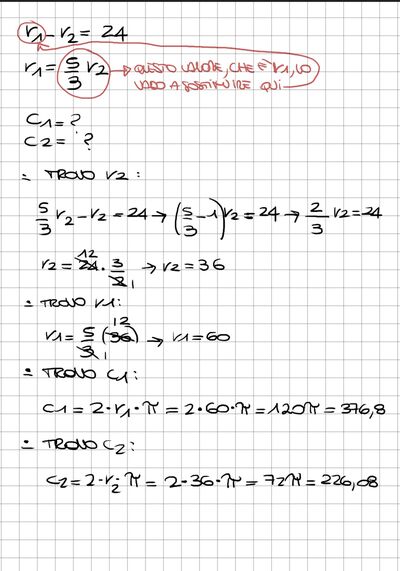 r1 - r2 = 24
r1 = 5/3 r2 → QUESTO VALORE, CHE È r1, LO
VADO A SOSTITUIRE QUI
C1 = ?
C2 = ?
∴ TROVO r2:
5/3 r2 - r2 = 24 → (5/3 - 1) r2 = 24 → 2/3 r2 = 24
12
r2 = 24 · 3/2 1 → r2 = 36
∴ TROVO r1:
12
r1 = 5/3 1 (36) → r1 = 60
∴ TROVO C1:
C1 = 2·r1·π = 2·60·π = 120π = 376,8
∴ TROVO C2:
C2 = 2·r2·π = 2·36·π = 72π = 226,08